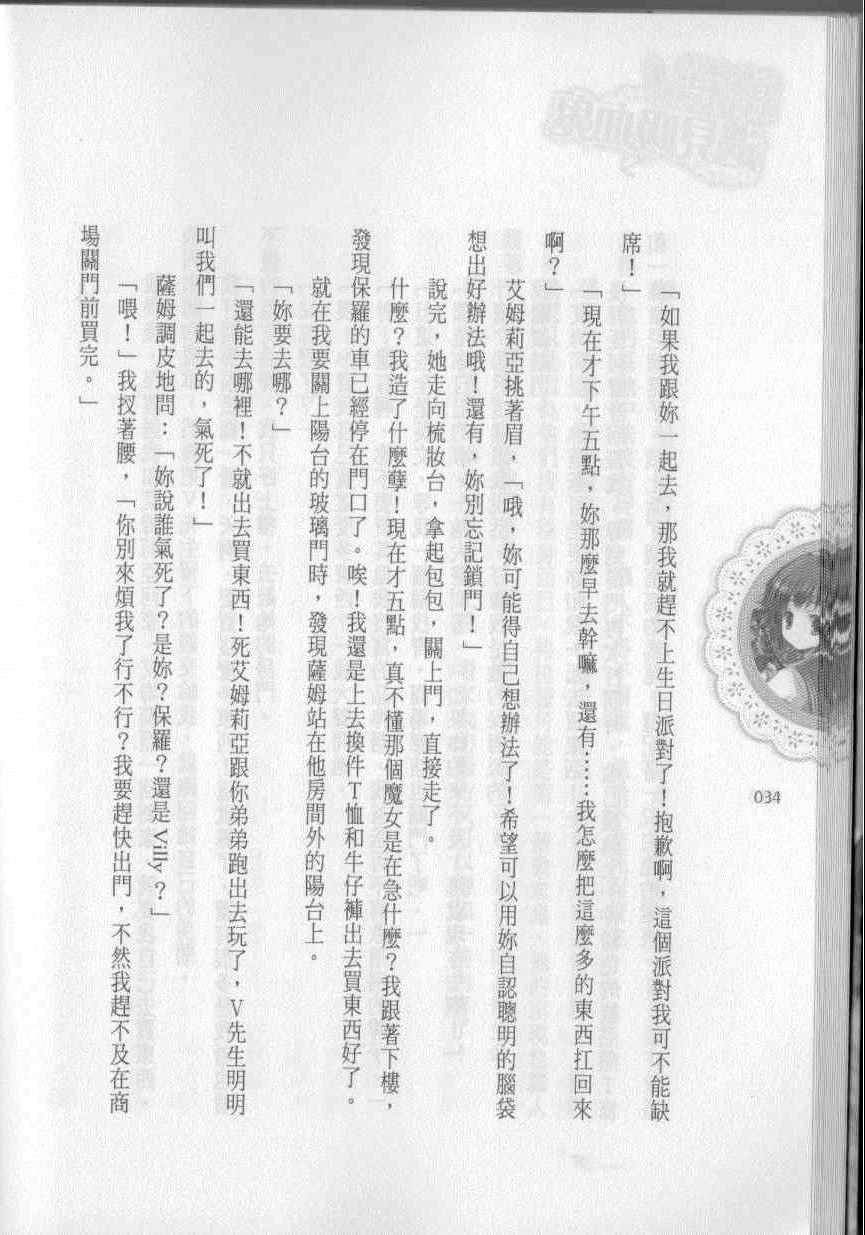 「如果我跟妳一起去，那我就趕不上生日派對了！抱歉啊，這個派對我可不能缺
席！」
「現在才下午五點，妳那麼早去幹嘛，還有……我怎麼把這麼多的東西扛回來
啊？」
艾姆莉亞挑著眉，「哦，妳可能得自己想辦法了！希望可以用妳自認聰明的腦袋
想出好辦法哦！還有，妳別忘記鎖門！」
說完，她走向梳妝台，拿起包包，關上門，直接走了。
什麼？我造了什麼孽！現在才五點，真不懂那個魔女是在急什麼？我跟著下樓，
發現保羅的車已經停在門口了。唉！我還是上去換件T恤和牛仔褲出去買東西好了。
就在我要關上陽台的玻璃門時，發現薩姆站在他房間外的陽台上。
「妳要去哪？」
「還能去哪裡！不就出去買東西！死艾姆莉亞跟你弟弟跑出去玩了，V先生明明
叫我們一起去的，氣死了！」
薩姆調皮地問：「妳說誰氣死了？是妳？保羅？還是Villy？」
「喂！」我扠著腰，「你別來煩我了行不行？我要趕快出門，不然我趕不及在商
場關門前買完。」
034